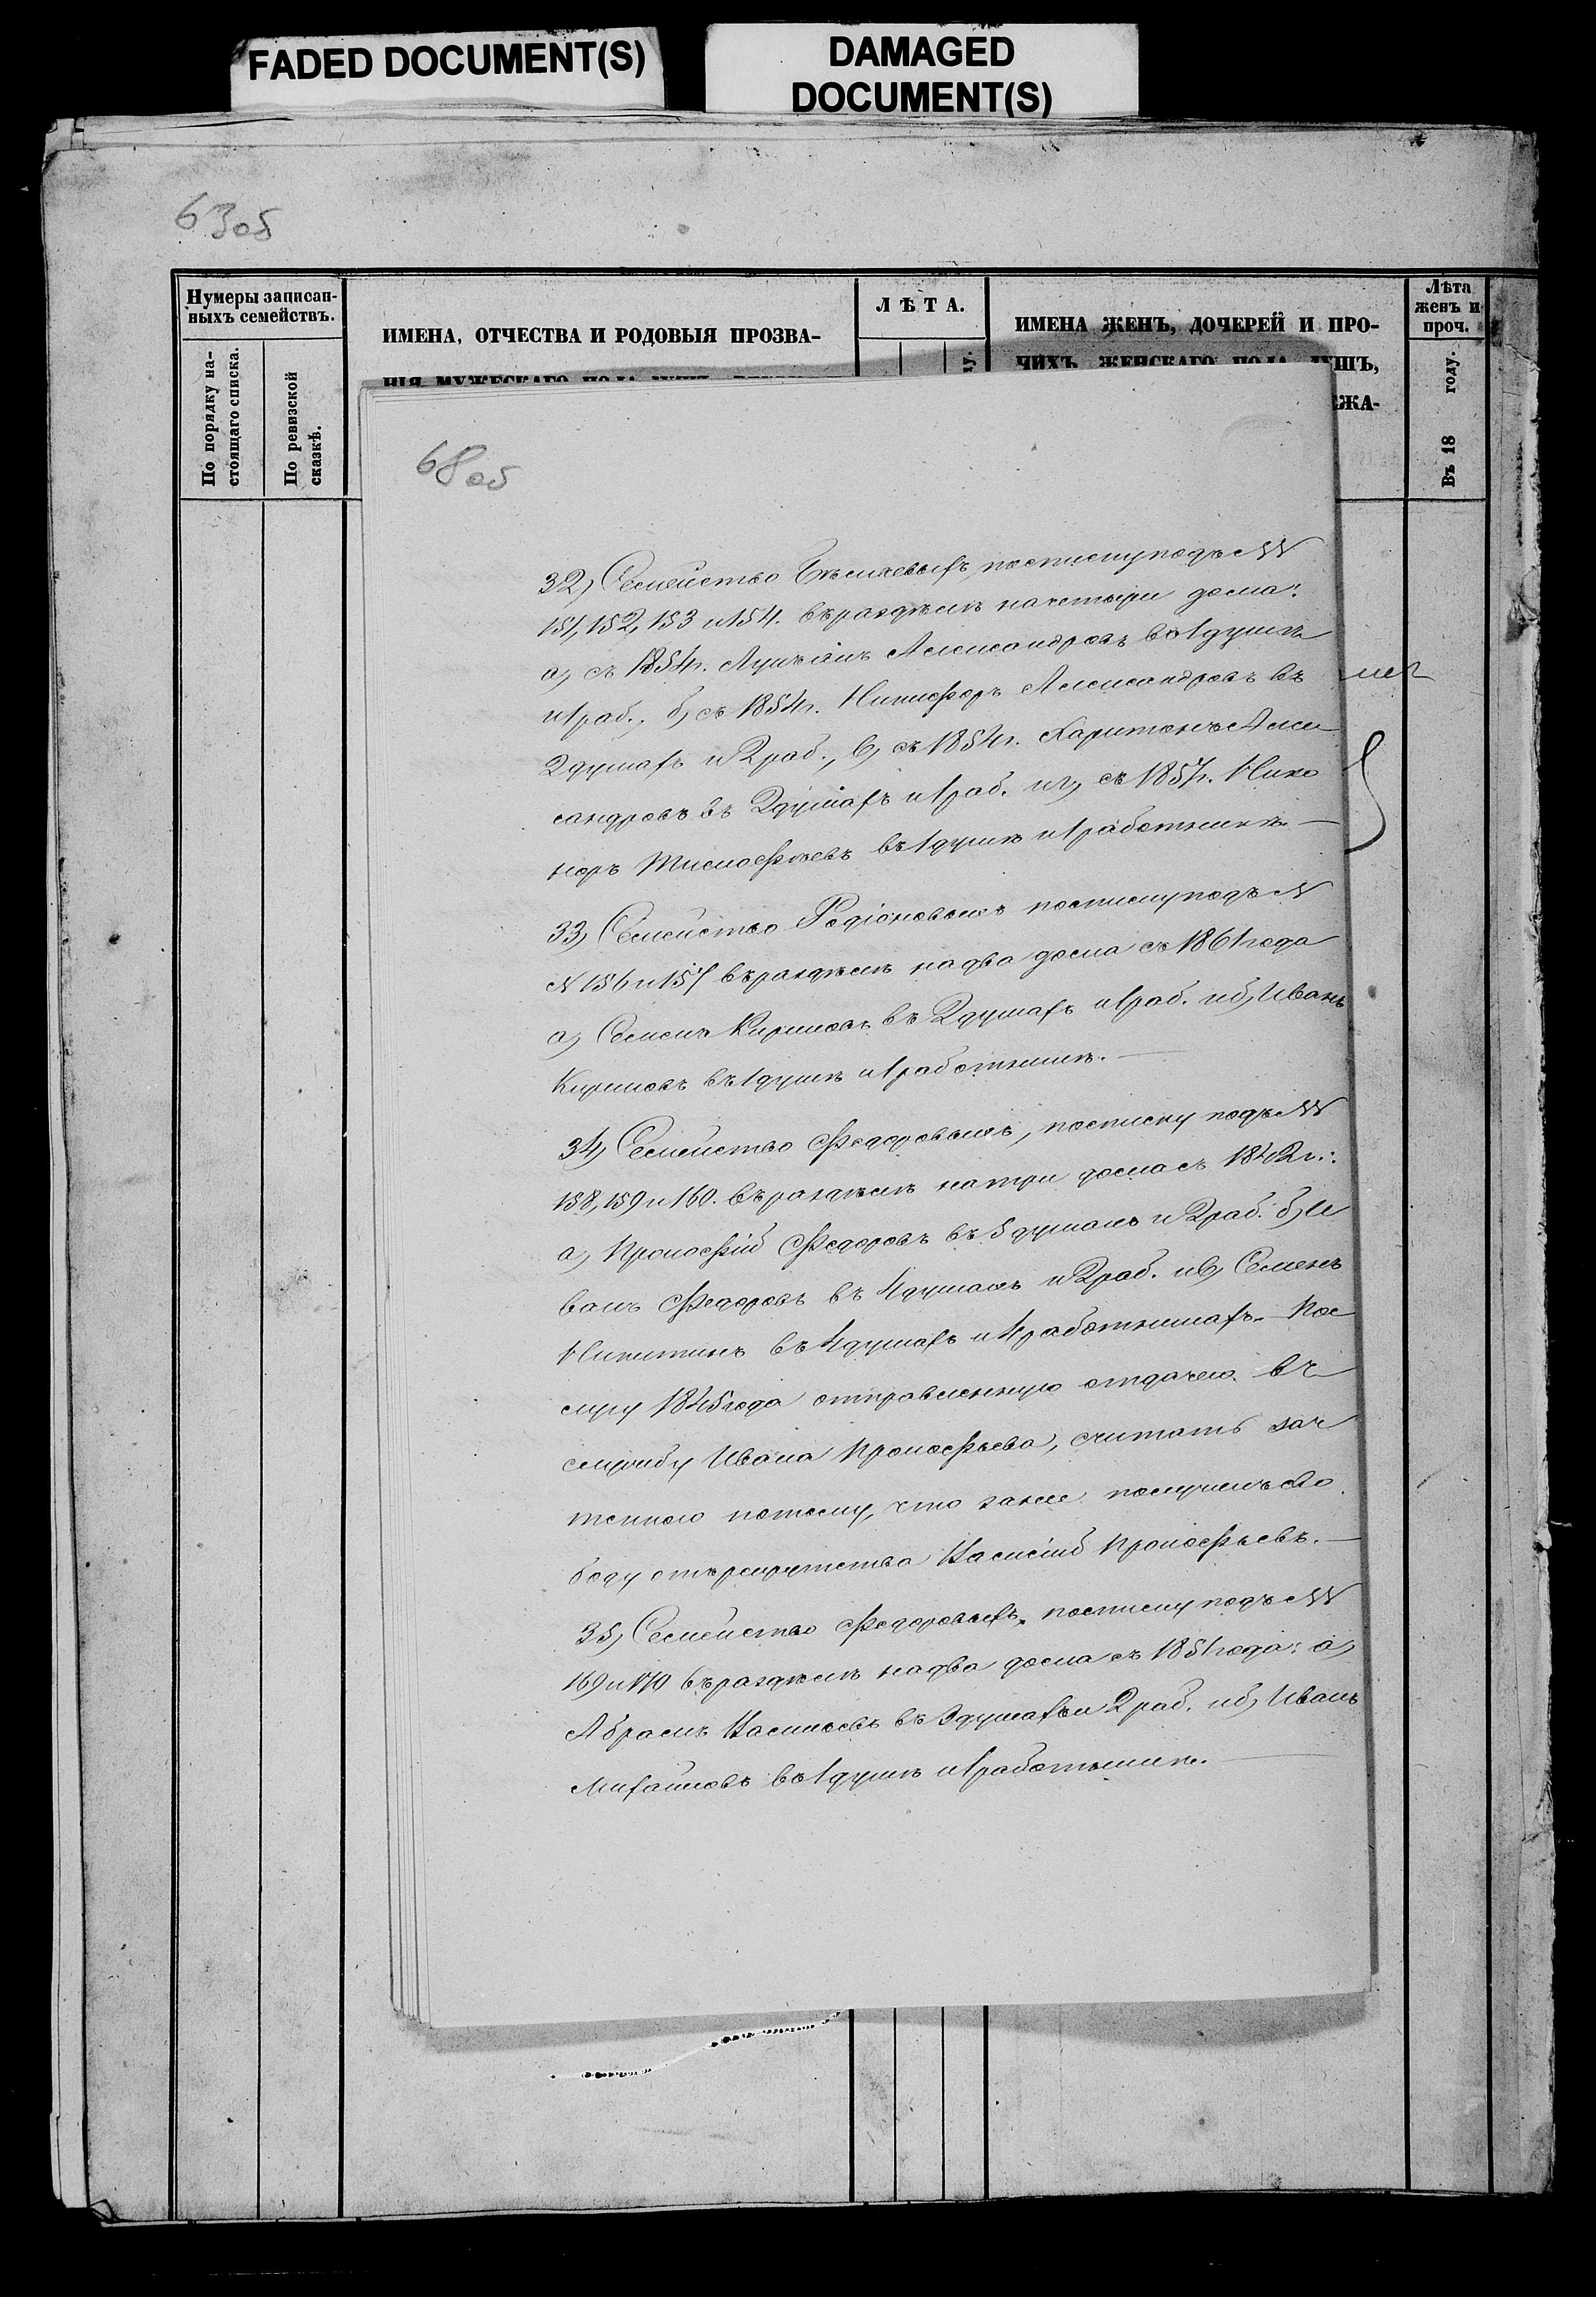 FADED DOCUMENT(S)
DAMAGED
DOCUMENT(S)
63об
Нумеры записан-
ныхъ семействъ.
По порядку на-
стоящаго списка.
По ревизской
сказкѣ.
ИМЕНА, ОТЧЕСТВА И РОДОВЫЯ ПРОЗВА-
НІЯ МУЖЕСКАГО ПОЛА
ЛѢТА.
ИМЕНА ЖЕНЪ, ДОЧЕРЕЙ И ПРО-
ЧИХЪ ЖЕНСКАГО ПОЛА ДУШЪ,
ЕЖА-
Лѣта
женъ и
проч.
Въ 18 году.
68об
32) Семейство посписку подъ №№
151, 152, 153 и 154. въ раздѣлѣ на четыри дома:
а) съ 1854г. Лукіянъ Александровъ въ 1 душѣ
и 1 раб., б) съ 1854г. Никифоръ Александровъ въ
2 душахъ и 2 раб., в) съ 1854г. Харитонъ Алек
сандровъ въ 2 душахъ и 1 раб. и г) съ 1857г. Ника
норъ Тимофѣевъ въ 1 душѣ и 1 работникѣ. —
33) Семейство Родіоновыхъ посписку подъ №
№ 156 и 157 въ раздѣлѣ на два дома съ 1861 года
а) Семенъ Кириловъ въ 2 душахъ и 1 раб. и б) Иванъ
Кириловъ въ 1 душѣ и 1 работникѣ. —
34) Семейство Федоровыхъ, посписку подъ №№
158, 159 и 160. въ раздѣлѣ на три дома съ 1842г.:
а) Прокофій Федоровъ въ 5 душахъ и 2 раб. б) И
ванъ Федоровъ въ 4 душахъ и 2 раб. и в) Семенъ
Никитинъ въ 4 душахъ и 4 работникахъ. Пос
лугу 1845 года отправленную отдачею въ
службу Ивана Прокофьева, считать зач
тенною потому, что занее получилъ сво
боду отърекрутства Василій Прокофьевъ. —
35) Семейство Федоровыхъ, посписку подъ №№
169 и 170 въ раздѣлѣ на два дома съ 1851 года: а)
Абрамъ Васильевъ въ 3 душахъ и 2 раб. и б) Иванъ
Михайловъ въ 1 душѣ и 1 работникѣ. —